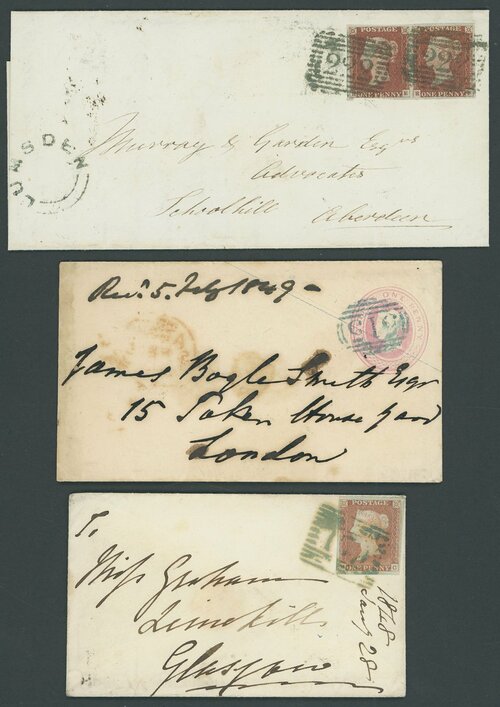 POSTAGE POSTAGE
ONE PENNY ONE PENNY
LUMSDEN
Murray & Garden Esqrs
Advocates
Schoolhill Aberdeen
Recd. 5. Feby 1849
ONE PENNY
James Bogle Smith Esqr
15 Token House Yard
London
POSTAGE
ONE PENNY
To
Miss Graham
Limehill
Glasgow
1848
Jany 28